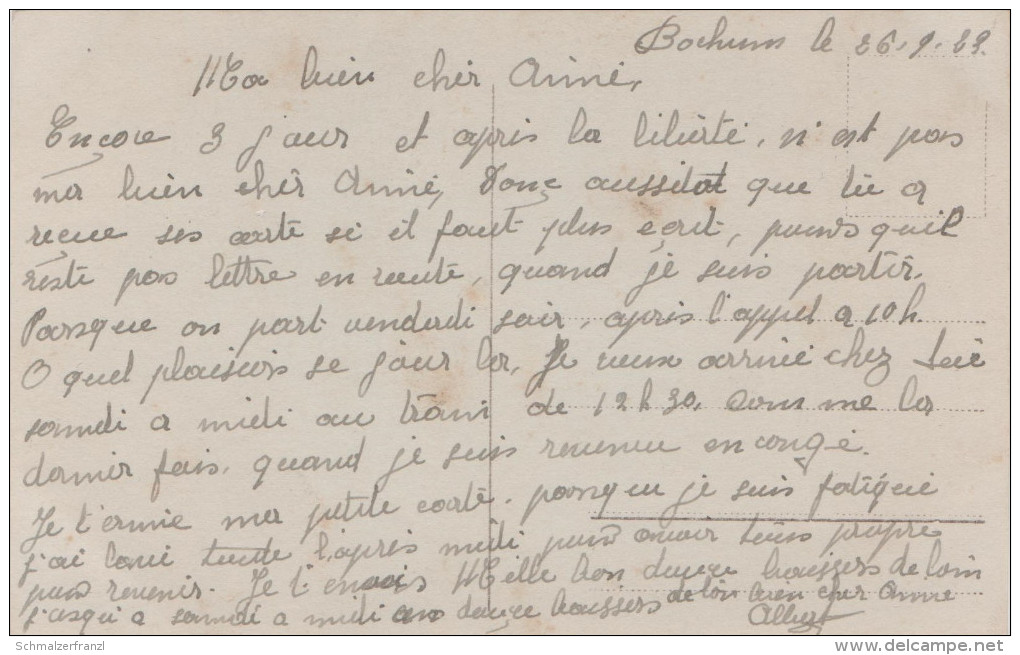 Bochum le 26.9.23.
Ma bien cher Anné,
Encore 3 jour et apris la liberté, n'est pas
ma bien cher Anné, Donc aussitot que tu a
recue ses carte si il faut plus ecrit, pour quil
reste pas lettre en route, quand je suis partir.
Parsque on part vendudi soir, apris l'appel a 10h.
O quel plaisirs se jour la, Je veux arrivé chez
samdi a midi au train de 12h30. Comme la
dernir fois, quand je suis revenu en congé.
Je t'ecrie ma petite carte. parsque je suis fatigue
j'ai lavé toute l'apris midi pour avoir tous propre
pour revenir. Je t'envois Mille bon douce baissers de loin
j'usqu'a samdi a midi douce baissers de loin bien cher Anne
Albert
Schmalzerfranzl
delcampe.net